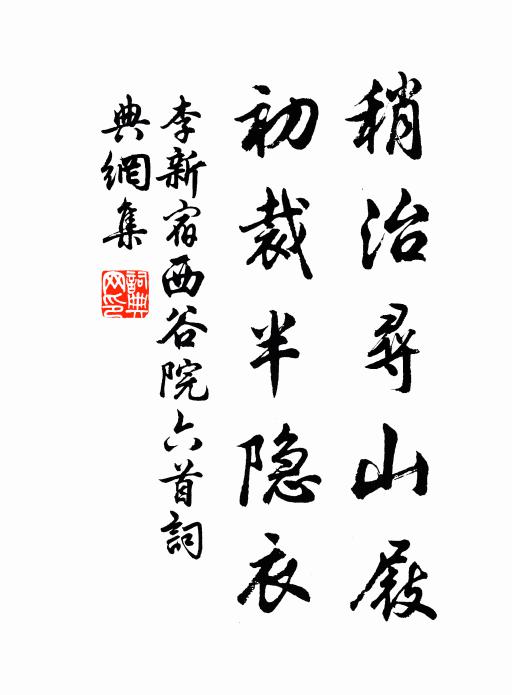 稍治尋山屐
初裁半隐衣
李新宿西谷院六首詞
典網集
詞典网印